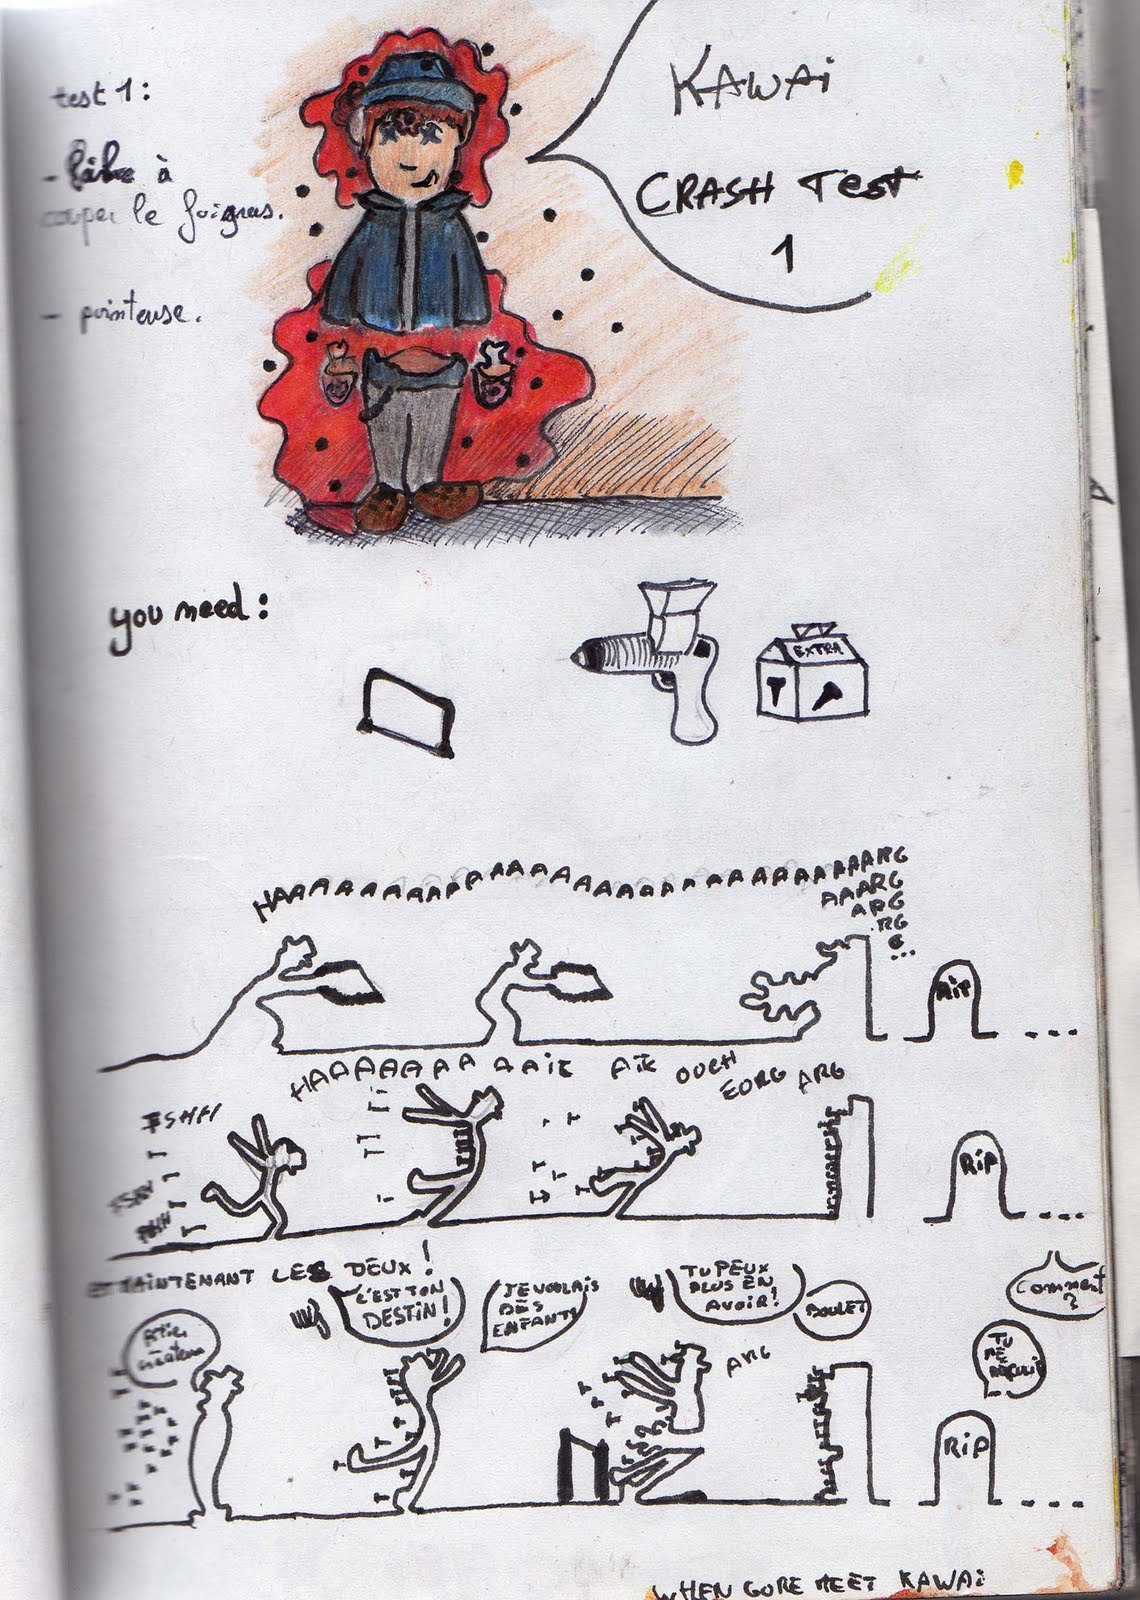 test 1:
- à
couper le foigras.
- pointeuse.
KAWAi
CRASH TEST
1
you need:
EXTRA
HAAAAAAAAAAAAAAAAAAAAAAAAAAAAAAARG
AAARG
ARG
RG
G
...
RiP
...
HAAAAAAA AAïE AïE OUCH
EORG ARG
FSHH
FSHH
FSHH
RiP
...
ET MAINTENANT LES DEUX!
C'EST TON
DESTIN!
JE VOULAIS
DES
ENFANTS
TU PEUX
PLUS EN
AVOIR!
BOULET
Comment
?
TU
ARG
RiP
...
WHEN GORE MEET KAWAi